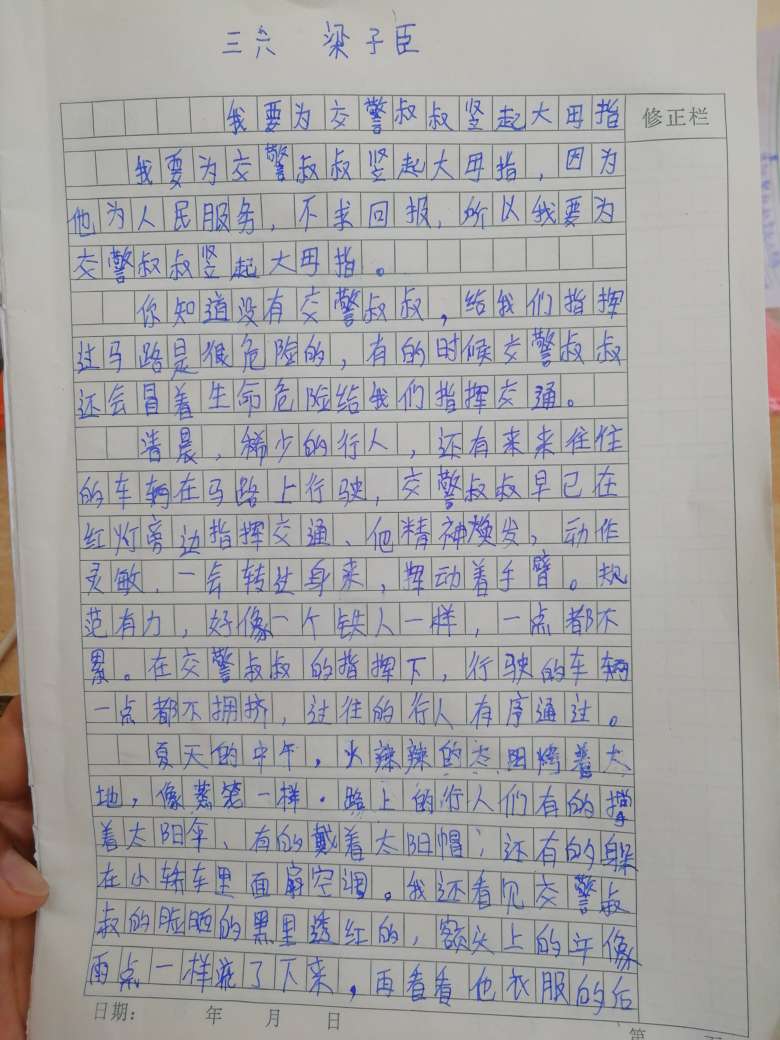 三六 梁子臣
我要为交警叔叔竖起大母指
修正栏
我要为交警叔叔竖起大母指，因为
他为人民服务，不求回报，所以我要为
交警叔叔竖起大母指。
你知道没有交警叔叔，给我们指挥
过马路是很危险的，有的时候交警叔叔
还会冒着生命危险给我们指挥交通。
清晨，稀少的行人，还有来来往往
的车辆在马路上行驶，交警叔叔早已在
红灯旁边指挥交通、他精神焕发，动作
灵敏，一会转过身来，挥动着手臂。规
范有力，好像一个铁人一样，一点都不
累。在交警叔叔的指挥下，行驶的车辆
一点都不拥挤，过往的行人有序通过。
夏天的中午，火辣辣的太阳烤着大
地，像蒸笼一样．路上的行人们有的撑
着太阳伞、有的戴着太阳帽；还有的躲
在小轿车里面扇空调。我还看见交警叔
叔的脸晒的黑里透红的，额头上的汗像
雨点一样流了下来，再看看他衣服的后
日期： 年 月 日
第